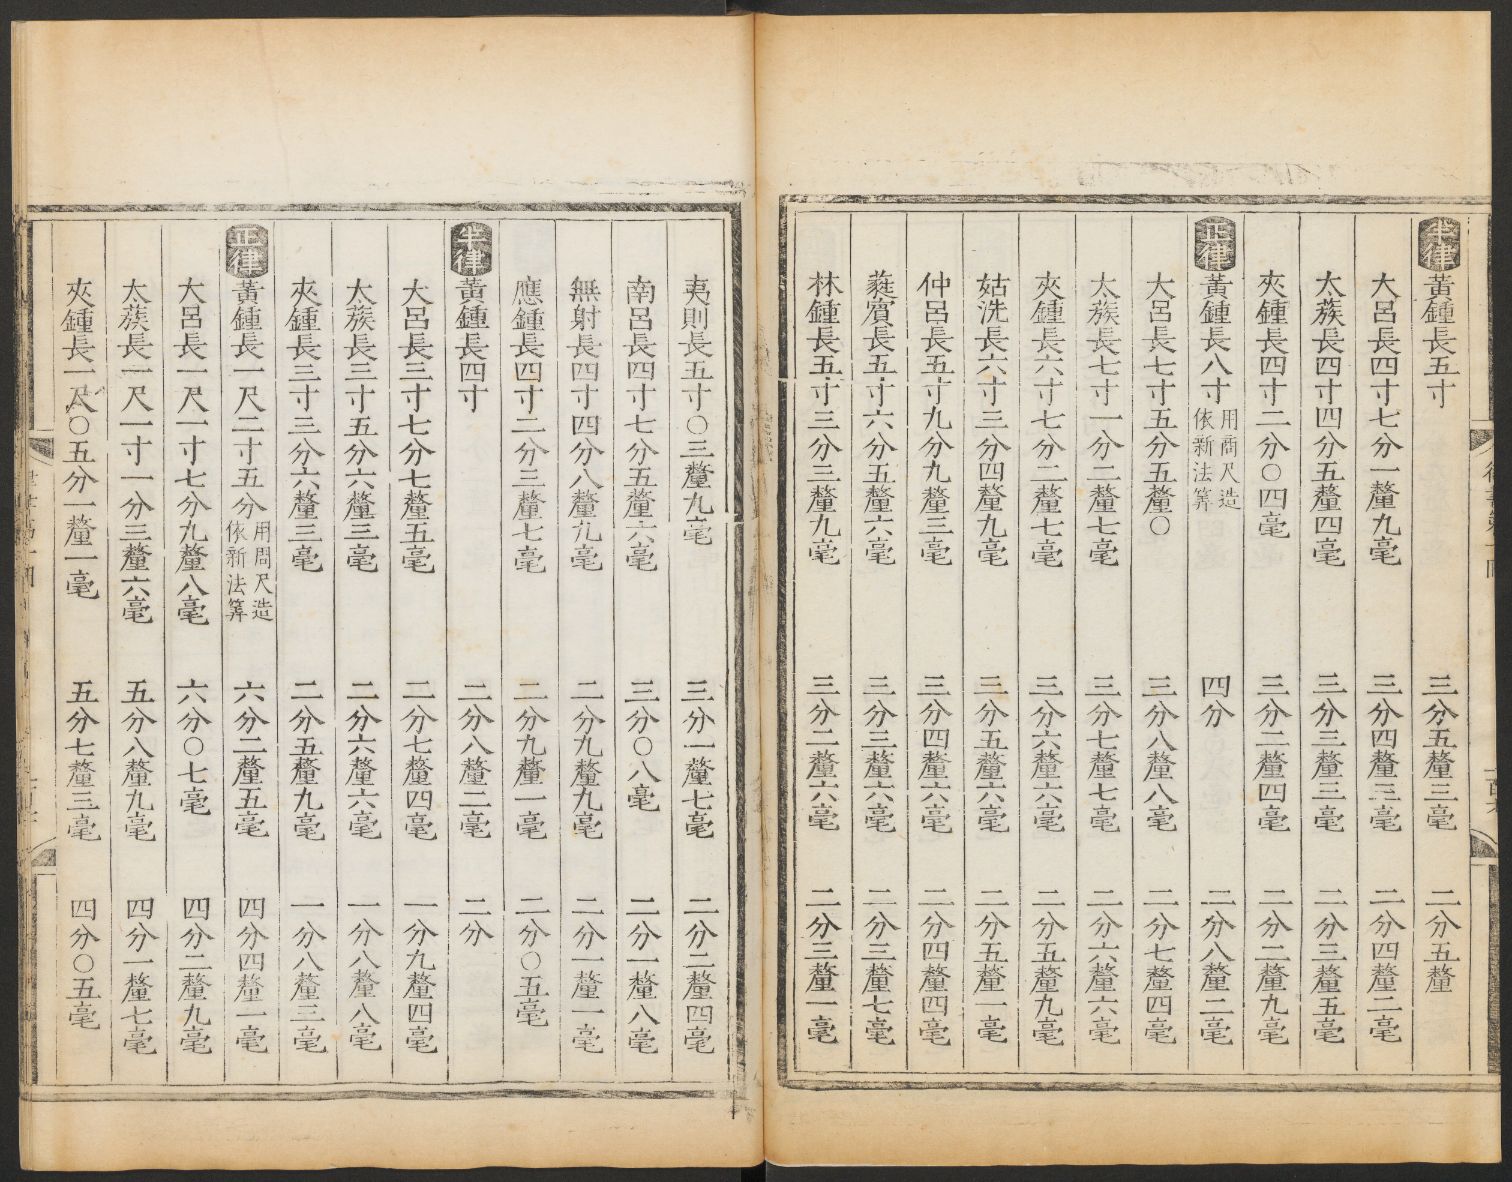 半律 黃鍾長五寸 三分五釐三毫 二分五釐
大呂長四寸七分一釐九毫 三分四釐三毫 二分四釐二毫
太蔟長四寸四分五釐四毫 三分三釐三毫 二分三釐五毫
夾鍾長四寸二分〇四毫 三分二釐四毫 二分二釐九毫
正律 黃鍾長八寸 用商尺造依新法筭 四分 二分八釐二毫
大呂長七寸五分五釐〇 三分八釐八毫 二分七釐四毫
太蔟長七寸一分二釐七毫 三分七釐七毫 二分六釐六毫
夾鍾長六寸七分二釐七毫 三分六釐六毫 二分五釐九毫
姑洗長六寸三分四釐九毫 三分五釐六毫 二分五釐一毫
仲呂長五寸九分九釐三毫 三分四釐六毫 二分四釐四毫
蕤賓長五寸六分五釐六毫 三分三釐六毫 二分三釐七毫
林鍾長五寸三分三釐九毫 三分二釐六毫 二分三釐一毫
夷則長五寸〇三釐九毫 三分一釐七毫 二分二釐四毫
南呂長四寸七分五釐六毫 三分〇八毫 二分一釐八毫
無射長四寸四分八釐九毫 二分九釐九毫 二分一釐一毫
應鍾長四寸二分三釐七毫 二分九釐一毫 二分〇五毫
半律 黃鍾長四寸 二分八釐二毫 二分
大呂長三寸七分七釐五毫 二分七釐四毫 一分九釐四毫
太蔟長三寸五分六釐三毫 二分六釐六毫 一分八釐八毫
夾鍾長三寸三分六釐三毫 二分五釐九毫 一分八釐三毫
正律 黃鍾長一尺二寸五分 用周尺造依新法筭 六分二釐五毫 四分四釐一毫
大呂長一尺一寸七分九釐八毫 六分〇七毫 四分二釐九毫
太蔟長一尺一寸一分三釐六毫 五分八釐九毫 四分一釐七毫
夾鍾長一尺〇五分一釐一毫 五分七釐三毫 四分〇五毫